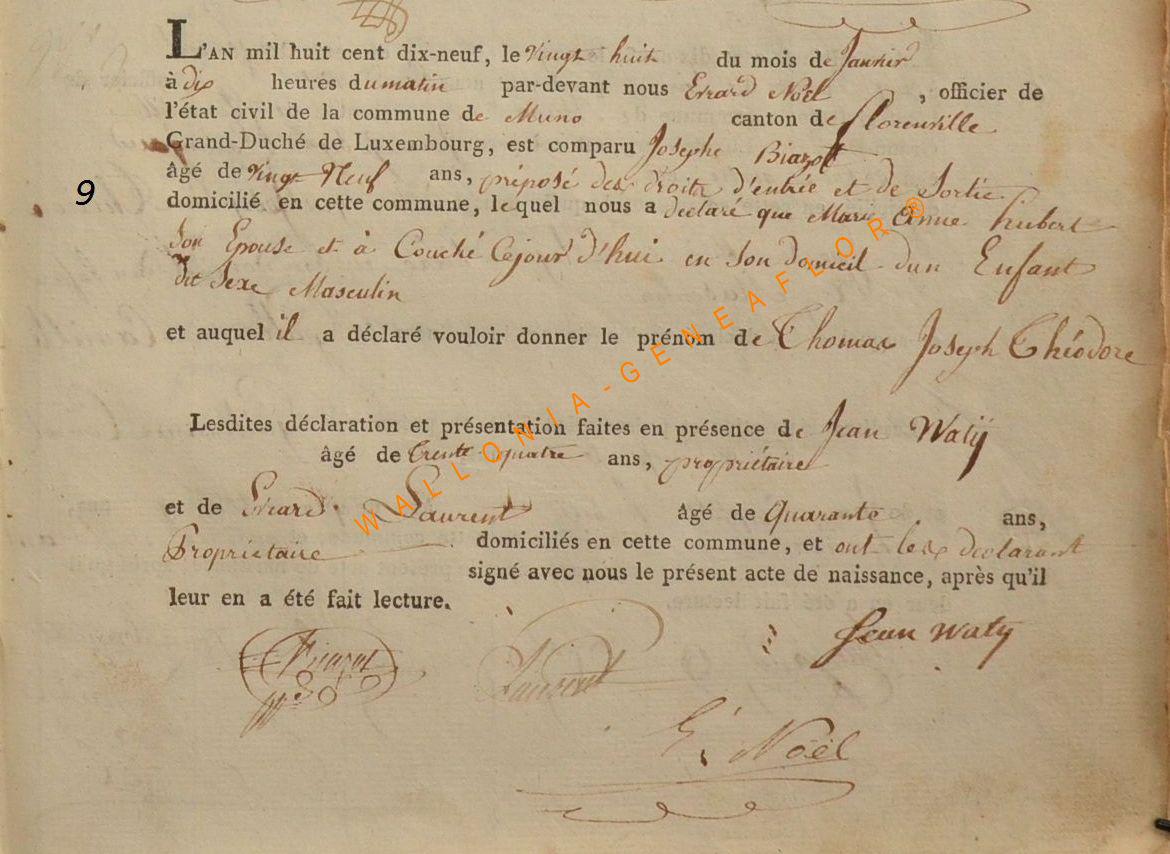 L'AN mil huit cent dix-neuf, le vingt huit du mois de Janvier
à dix heures du matin par-devant nous Errard Noël, officier de
l'état civil de la commune de Muno canton de florenville
Grand-Duché de Luxembourg, est comparu Josephe Biazot
âgé de vingt Neuf ans, préposé des droits d'entrée et de Sortie
9
domicilié en cette commune, lequel nous a declaré que Marie Anne hubert
Son Epouse et à Couché Cejour d'hui en Son domicil dun Enfant
du Sexe Masculin
et auquel il a déclaré vouloir donner le prénom de Thomas Joseph Théodore
Lesdites déclaration et présentation faites en présence de Jean Watÿ
âgé de trente quatre ans, propriétaire
et de Erard Laurent âgé de Quarante ans,
Propriétaire domiciliés en cette commune, et ont les declarant
signé avec nous le présent acte de naissance, après qu'il
leur en a été fait lecture.
Jean Waty
Biazot
Laurent
E. Noël
WALLONIA-GENEAFLOR®